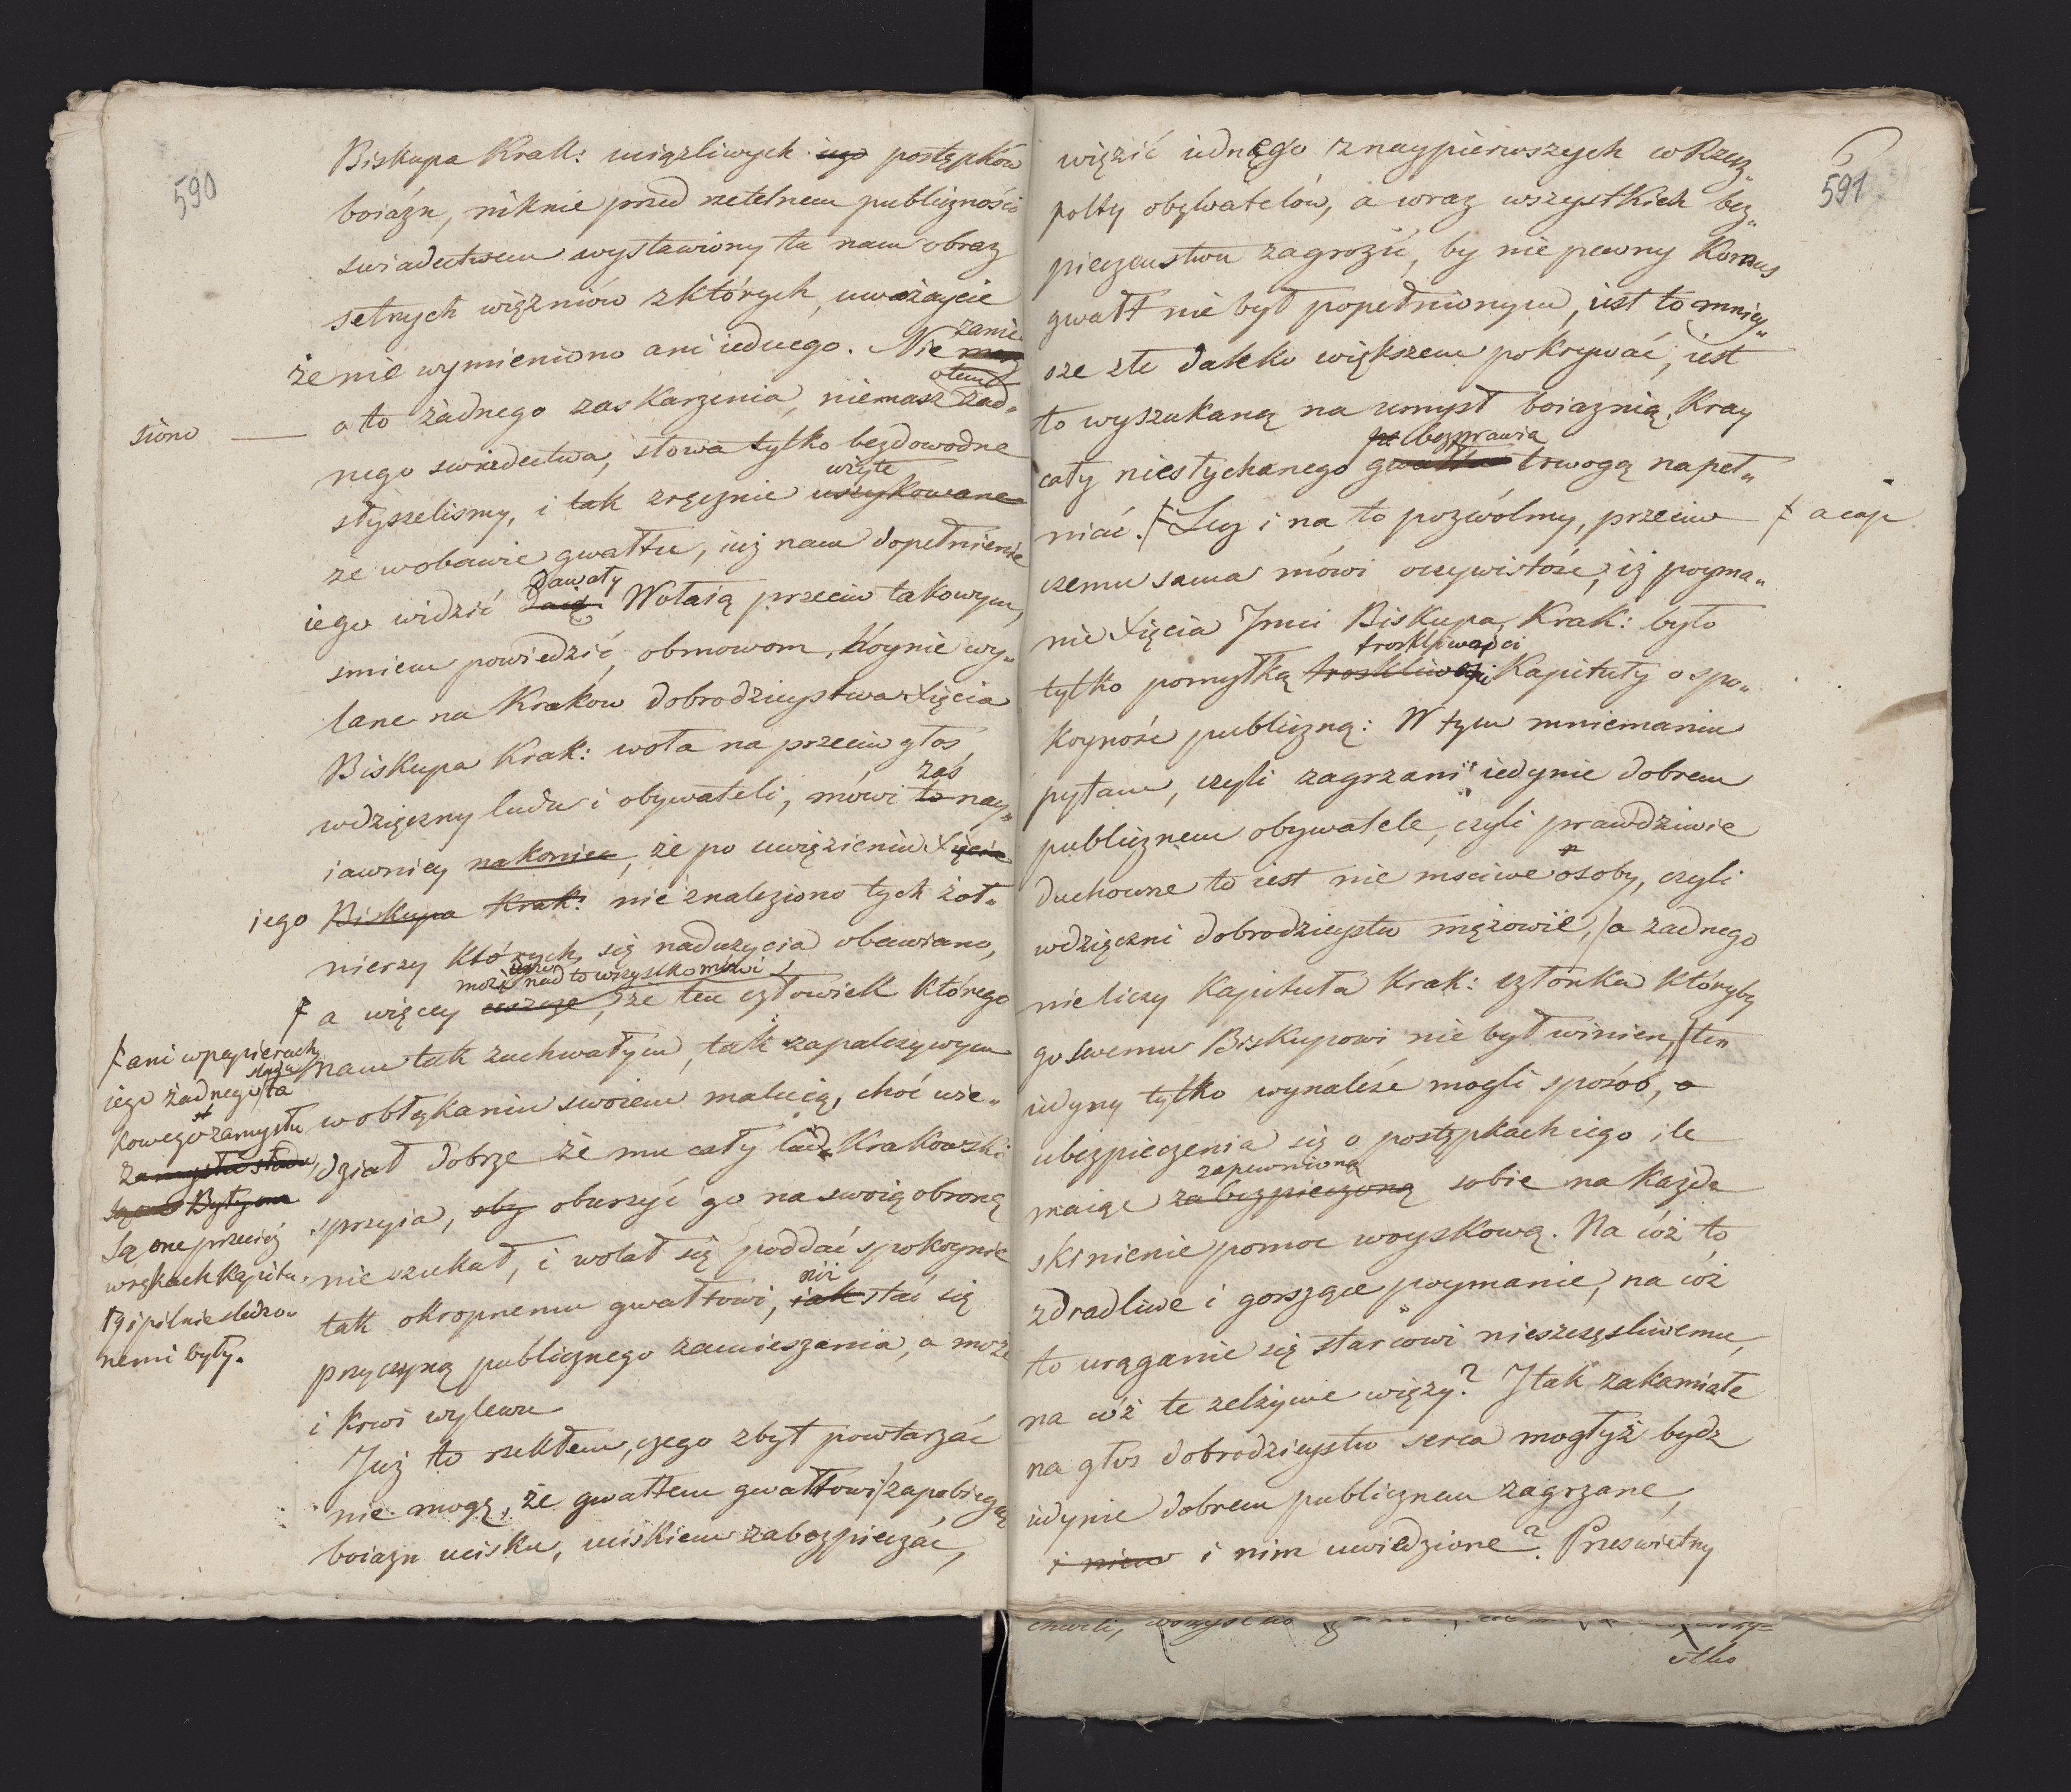 590
Biskupa Krak: uciążliwych iego postępków
boiázn, niknie przed rzetelnem publiczności
swiadectwem wystawiony tu nam obraz
setnych więzniów z których, uważaycie
że nie wymieniono ani iednego. Nie zanie
siono — o to żadnego zaskarżenia, niemasz o tem żad„
nego swiedectwa, słowa tylko bezdowodne
słyszelismy, i tak zręcznie użyte uszykowane
ze wobawie gwałtu, iuż nam dopełnienie
iego widzić dawały daią. Wołaią przeciw takowym,
smiem powiedzić, obmowom, hoynie wy„
lane na Krakow dobrodzieystwa Xięcia
Biskupa Krak: woła na przeciw głos
wdzięczny ludu i obywateli, mówi zaś to nay„
iawniey nakoniec, że po uwięzieniu Xięcia
jego Biskupa Krak: nie znaleziono tych żoł„
nierzy których się nadużycia obawiano,
ƒ a więcey może nad to wszystko mówi jeszcze, że ten człowiek którego
nam tak zuchwałym, tak zapalczywym
w obłąkaniu swoiem maluią, choć wie„
dział dobrze że mu cały lud Krakowski
sprzyia, oby oburzyć go na swoię obronę
nie szukał, i wolał się poddać spokoynie
tak okropnemu gwałtowi, niż iak stać się
przyczyną publicznego zamieszania, a może
i krwi wylewu
Już to rzekłem, czego zbyt powtarzać
nie mogę, że gwałtem gwałtowi zapobiegać
boiazn ucisku, uciskiem zabezpieczać,
ƒ ani w papierach
iego żadnego sladu ta
kowego zamysłu
zamysłu sladu
Są one przecięż
w ręKach Kapitu„
ły i pilnie sledzo„
nemi były.
591
więzić iednego z naypierwszych w Rzczy„
polty obywatelów, a wraz wszystkich bez„
pieczenstwu zagrozić, by nie pewny Komus
gwałt nie był popełnionym, iest to mniey„
sze złe daleko większem pokrywać, iest
to wyszukaną na umysł boiaznią, Kray
cały niesłychanego bezprawia gwałtu trwogą napeł„
niać. ƒ Lecz i na to pozwólmy, przeciw ƒ a cap
czemu sama mówi oczywistość, iż poyma„
nie Xięcia Jmci Biskupa Krak: było
tylko pomyłką troskliwości troskliwości Kapituły o spo„
Koyność publiczną: W tym mniemaniu
pytam, czyli zagrzani iedynie dobrem
publicznem obywatele, czyli prawdziwie
duchowne to iest nie msciwe osoby, czyli
wdzięczni dobrodzieystw mężowie, / a zadnego
nie liczy Kapituła Krak: członka któryby
go swemu Biskupowi nie był winien, / ten
iedyny tylko wynaleść mogli sposób, o
ubezpieczenia się o postępkach iego ile
maiąc zapewnioną zabezpieczoną sobie na każde
skinienie pomoc woyskową. Na cóż to
zdradliwe i gorszące poymanie, na cóż
to urąganie się starcowi nieszczęsliwemu,
na cóż te zelżywe więzy? I tak zakamiałe
na głos dobrodzieystw serca mogłyż bydz
iedynie dobrem publicznem zagrzane,
i niem i nim uwiedzione? Przeswietny